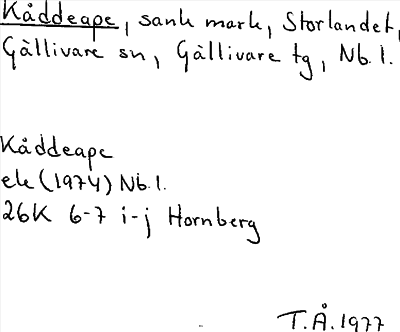 Kåddeape, sank mark, Storlandet,
Gällivare sn, Gällivare tg, Nb. l.
Kåddeape
ek (1974) Nb. l.
26K 6-7 i-j Hornberg
T.Å. 1977